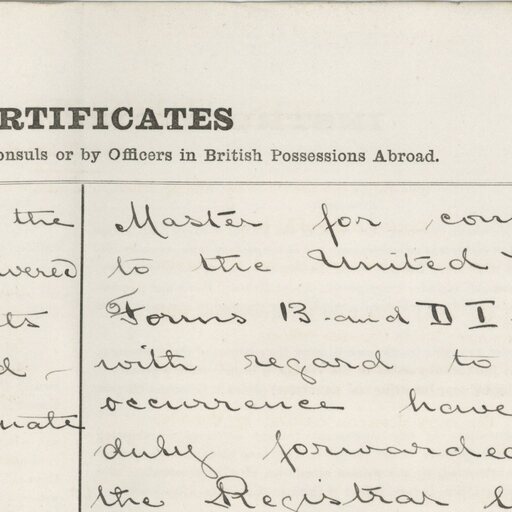 RTIFICATES
onsuls or by Officers in British Possessions Abroad.
the
vered
ts
d -
nate
Master for con
to the United
Forms B. and D I
with regard to
occurrence have
duly forwarded
the Registrar